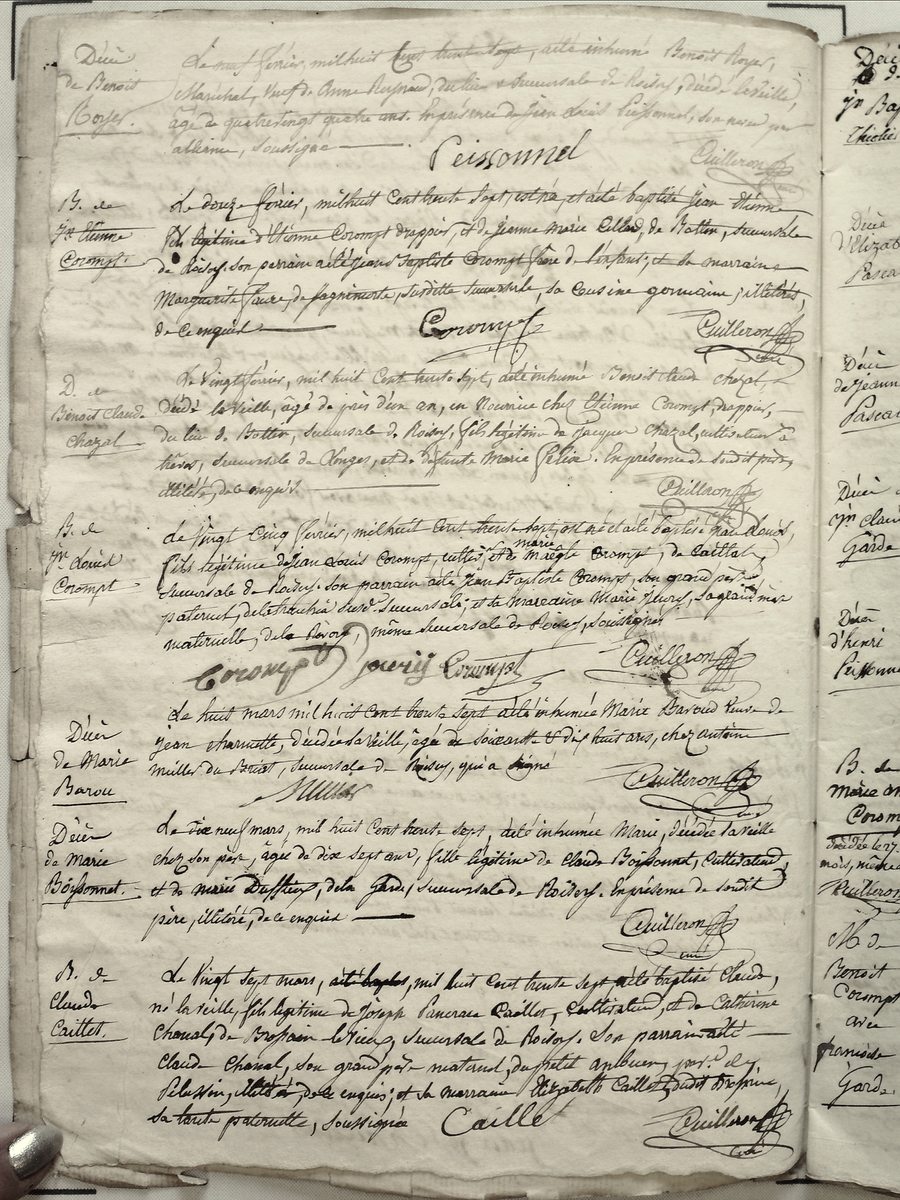 Décès
de Benoit
Royer.
Le neuf février, mil huit cent trente sept, a été inhumé Benoit Royer,
Maréchal, Veuf de Anne Reynaud, du lieu & succursale de Roisey, décédé la veille,
âgé de quatre vingt quatre ans. En présence de Jean Louis Peissonnel, son neveu par
alliance, soussigné
Peissonnel
Cuilleron
B. de
jn Etienne
Corompt.
Le douze février, mil huit cent trente sept, est né, et a été baptisé Jean Etienne
fils légitime d'Etienne Corompt drappier, et de Jeanne Marie, de Bottin, succursale
de Roisey. son parrain a été Jean Baptiste Corompt frère de l'enfant, et sa marraine
Marguerite Faure, de, susditte succursale, sa cousine germaine, illitérés,
de ce enquis
Corompt
Cuilleron
curé
D. de
Benoit Claude
Chazal
Le Vingt février, mil huit cent trente sept, a été inhumé Benoit Claude Chazal,
décédé la veille, âgé de près d'un an, en nourrice chez Etienne Corompt, drappier,
du lieu de Bottin, succursale de Roisey, fils légitime de Jacques Chazal, cultivateur à
succursale de Longes, et de défunte Marie. En présence du sudit
illitéré, de ce enquis.
Cuilleron
B. de
jn Louis
Corompt
Le Vingt cinq février, mil huit cent trente sept, est né et a été baptisé Jean Louis,
fils légitime de Jean Louis Corompt, cultivr, et de marie Corompt, de Caillat
succursale de Roisey. son parrain a été Jean Baptiste Corompt, son grand père
paternel, de, succursale, et sa marraine Marie, sa grand mère
maternelle, de la, même succursale de Roisey, soussignés
Corompt Corompt
Cuilleron
Décès
de Marie
Barou
Le huit mars mil huit cent trente sept a été inhumée Marie Baroud Veuve de
jean, décédée la veille, âgée de soixante & dix huit ans, chez antoine
Miller du Briat, succursale de Roisey, qui a signé
Miller
Cuilleron
curé
Décès
de Marie
Boissonnet.
Le dix neuf mars, mil huit cent trente sept, a été inhumée Marie, décédée la veille
chez son père, âgée de dix sept ans, fille légitime de Claude Boissonnet, cultivateur,
et de marie, de la Garde, succursale de Roisey. En présence de sondit
père, illitéré, de ce enquis
Cuilleron
curé
B. de
Claude
Caillet.
Le Vingt sept mars, mil huit cent trente sept a été baptisé Claude,
né la veille, fils légitime de Joseph Pancrace Caillet, cultivateur, et de Catherine
Chanal, de le vieux, succursale de Roisey. Son parrain a été
Claude Chanal, son grand père maternel, du petit, par.se de
Pelussin, illitéré de ce enquis; et sa marraine Elizabeth Caillet, dudit
sa tante paternelle, soussignée
Caille
Cuilleron
curé
Décès
jn Bap
Décès
d'Elizab
Pasca
Décès
de Jeann
Pascal
Décès
jn Clau
Garde
Décès
d'henri
Peissonne
B. de
Marie an
Corom
décédée le 27
mois, même
Cuilleron
M. de
Benoit
Corompt
avec
françoise
Garde.